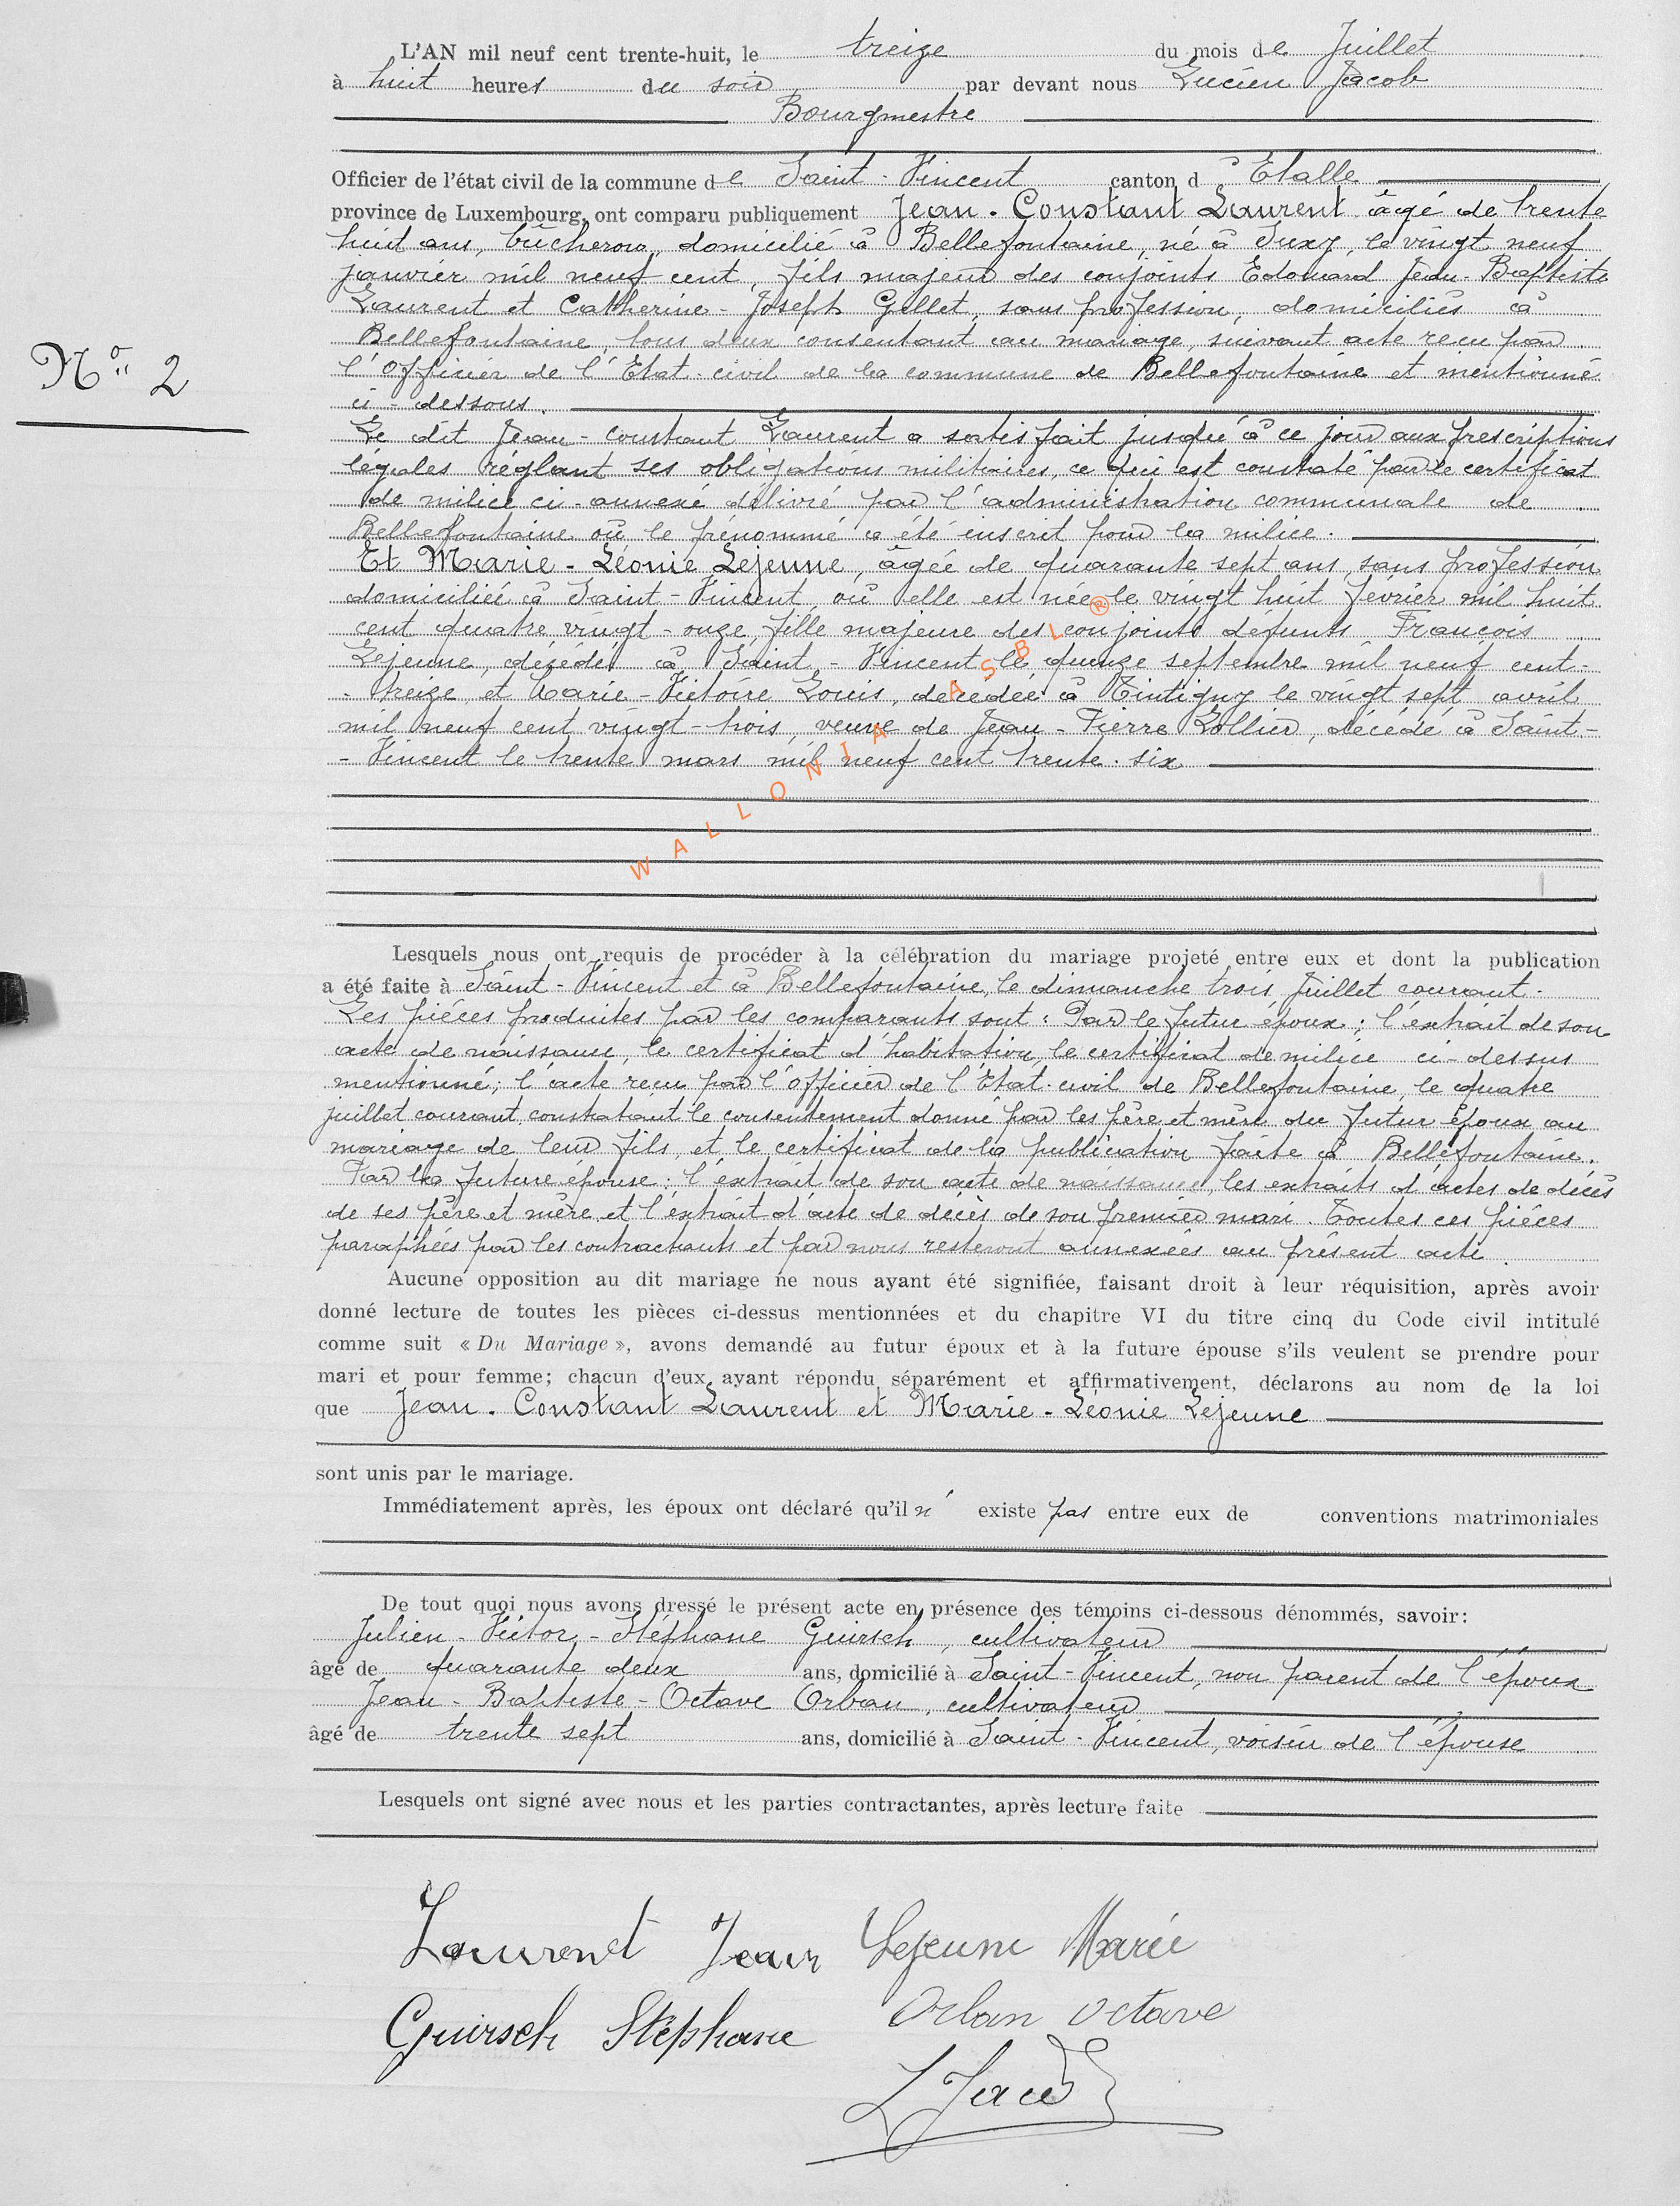 L'AN mil neuf cent trente-huit, le treize du mois de Juillet
à huit heures du soir par devant nous Lucien Jacob
Bourgmestre
Officier de l'état civil de la commune de Saint-Vincent canton d'Etalle
province de Luxembourg, ont comparu publiquement Jean-Constant Laurent âgé de trente
huit ans, bûcheron, domicilié à Bellefontaine, né à Suxy, le vingt neuf
janvier mil neuf cent, fils majeur des conjoints Edouard Jean-Baptiste
Laurent et Catherine-Joseph Gillet, sans profession, domiciliés à
Nº 2
Bellefontaine, tous deux consentant au mariage, suivant acte reçu par
l'Officier de l'Etat-civil de la commune de Bellefontaine et mentionné
ci-dessous.
Le dit Jean-Constant Laurent a satisfait jusqu'à ce jour aux prescriptions
légales réglant ses obligations militaires, ce qui est constaté par le certificat
de milice ci-annexé délivré par l'administration communale de
Bellefontaine où le prénommé a été inscrit pour la milice.
Et Marie-Léonie Lejeune, âgée de quarante sept ans, sans profession
domiciliée à Saint-Vincent, où elle est née le vingt huit février mil huit
cent quatre vingt-onze, fille majeure des conjoints defunts François
Lejeune, décédé à Saint-Vincent le quinze septembre mil neuf cent-
-treize et Marie-Victoire Louis, décédée à Tintigny le vingt sept avril
mil neuf cent vingt-trois, veuve de Jean-Pierre Rollier, décédé à Saint-
-Vincent le trente mars mil neuf cent trente-six
WALLONIA ASBL ®
Lesquels nous ont requis de procéder à la célébration du mariage projeté entre eux et dont la publication
a été faite à Saint-Vincent et à Bellefontaine, le dimanche trois Juillet courant.
Les pièces produites par les comparants sont: Par le futur époux: l'extrait de son
acte de naissance, le certificat d'habitation, le certificat de milice ci-dessus
mentionné; l'acte reçu par l'officier de l'Etat-civil de Bellefontaine, le quatre
juillet courant, constatant le consentement donné par les père et mère du futur époux au
mariage de leur fils, et le certificat de la publication faite à Bellefontaine.
Par la future épouse: l'extrait de son acte de naissance, les extraits d'actes de décès
de ses père et mère et l'extrait d'acte de décès de son premier mari. Toutes ces pièces
paraphées par les contractants et par nous resteront annexées au présent acte.
Aucune opposition au dit mariage ne nous ayant été signifiée, faisant droit à leur réquisition, après avoir
donné lecture de toutes les pièces ci-dessus mentionnées et du chapitre VI du titre cinq du Code civil intitulé
comme suit « Du Mariage », avons demandé au futur époux et à la future épouse s'ils veulent se prendre pour
mari et pour femme; chacun d'eux ayant répondu séparément et affirmativement, déclarons au nom de la loi
que Jean-Constant Laurent et Marie-Léonie Lejeune
sont unis par le mariage.
Immédiatement après, les époux ont déclaré qu'il n' existe pas entre eux de conventions matrimoniales
De tout quoi nous avons dressé le présent acte en présence des témoins ci-dessous dénommés, savoir:
Julien-Victor-Stéphane Guirsch, cultivateur
âgé de quarante deux ans, domicilié à Saint-Vincent, non parent de l'époux
Jean-Baptiste-Octave Orban, cultivateur
âgé de trente sept ans, domicilié à Saint-Vincent, voisin de l'épouse
Lesquels ont signé avec nous et les parties contractantes, après lecture faite
Laurent Jean Lejeune Marie
Guirsch Stéphane Orban Octave
L Jacob